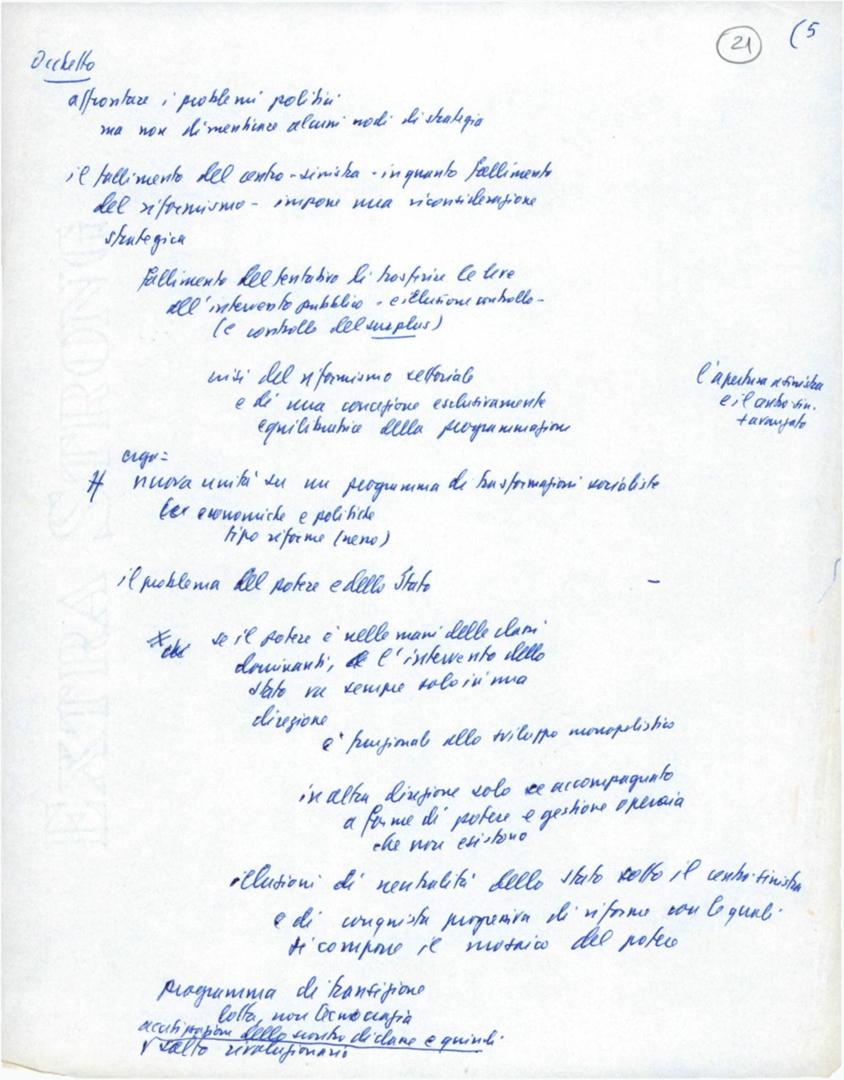 21
(5
Occhetto
affrontare i problemi politici
ma non dimenticare alcuni nodi di strategia
il fallimento del centro-sinistra - in quanto fallimento
del riformismo - impone una riconsiderazione
strategica
fallimento del tentativo di trasferire le leve
all'intervento pubblico - e illusione controllo -
(e controllo del surplus)
crisi del riformismo settoriale
e di una concezione esclusivamente
equilibratrice della programmazione
l'apertura a sinistra
e il centro-sin.
+ avanzato
ergo =
# nuova unità su un programma di trasformazioni socialiste
economiche e politiche
tipo riforme (nenni)
il problema del potere e dello Stato
-
se il potere è nelle mani delle classi
dominanti, l'intervento dello
stato va sempre solo in una
direzione
e' funzionale allo sviluppo monopolistico
in altra direzione solo se accompagnato
a forme di potere e gestione operaia
che non esistono
illusioni di neutralità dello stato sotto il centro-sinistra
e di conquista progressiva di riforme con le quali
si compone il mosaico del potere
programma di transizione
lotta, non tecnocrazia
acutizzazione dello scontro di classe e quindi
salto rivoluzionario
EXTRA STRONG